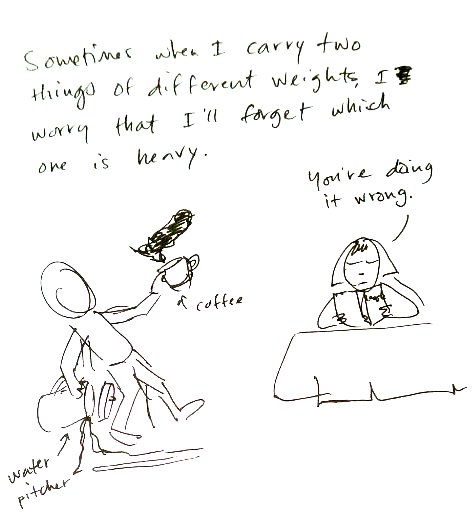 Sometimes when I carry two
things of different weights, I
worry that I'll forget which
one is heavy.
You're doing
it wrong.
coffee
water
pitcher